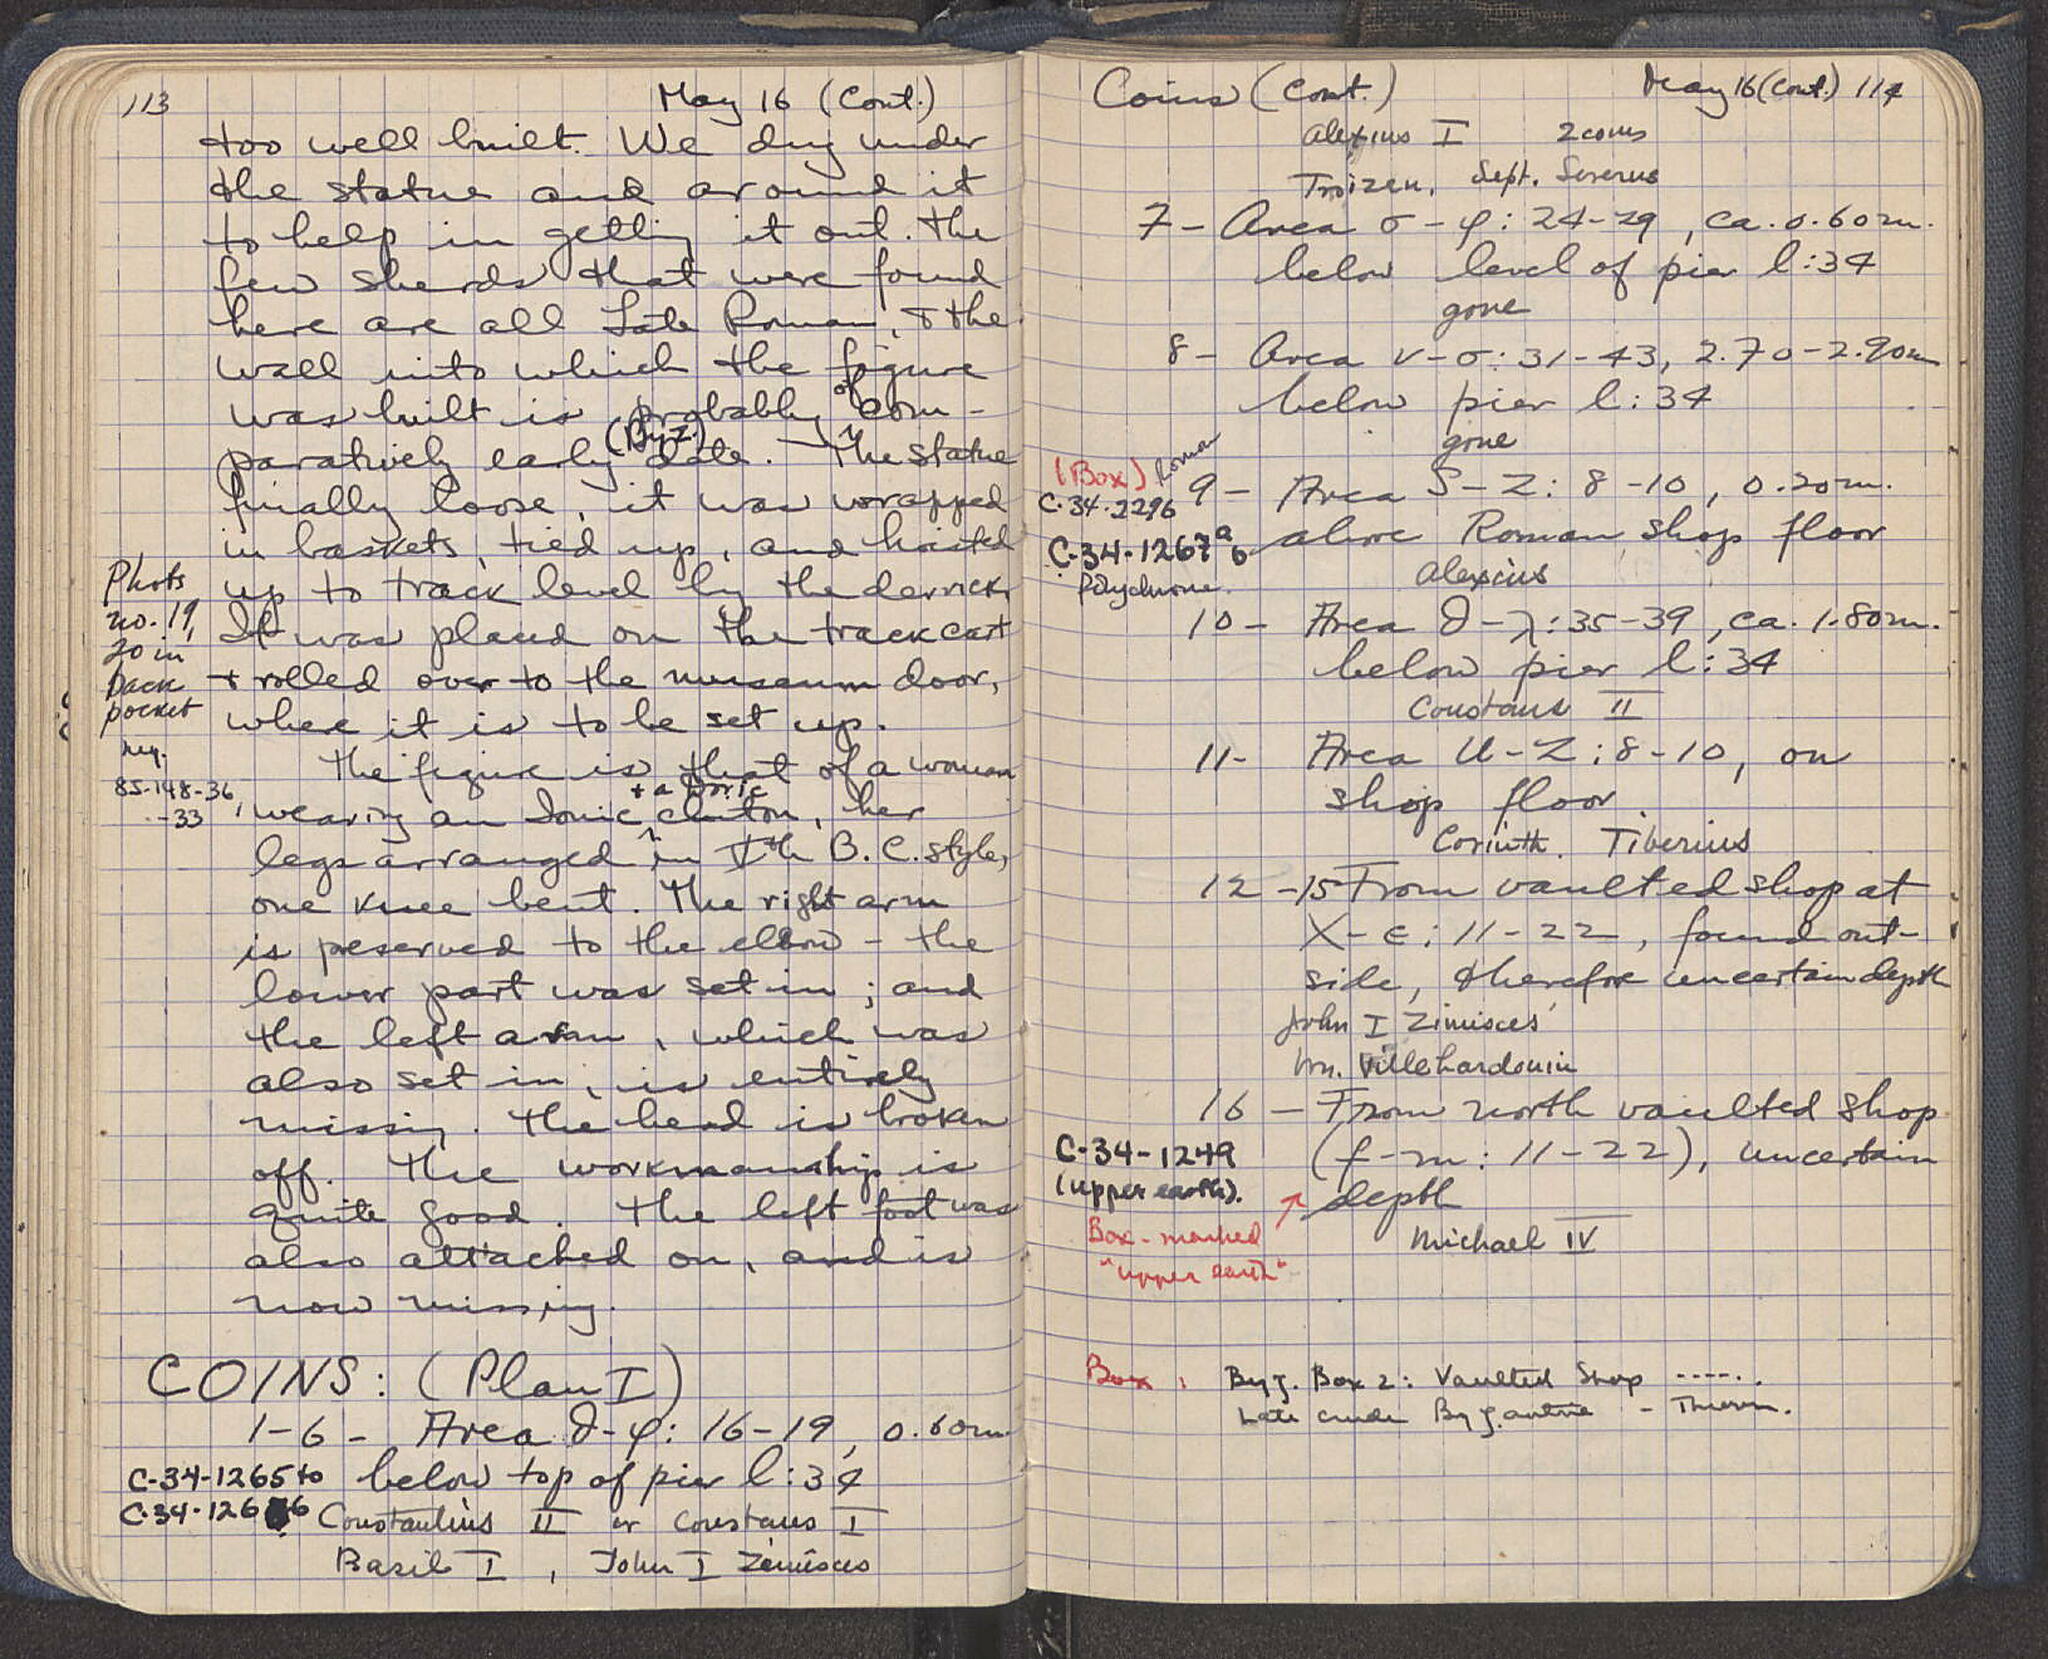 113
May 16 (Cont.)
too well built. We dug under
the statue and around it
to help in getting it out. The
few sherds that were found
here are all Late Roman, + the
wall into which the figure
was built is probably of com-
paratively early (Byz.) date. The statue
finally loose, it was wrapped
in baskets, tied up, and hoisted
up to track level by the derrick.
It was placed on the track cart
+ rolled over to the museum door,
where it is to be set up.
Phots
no. 19,
20 in
back
pocket
neg.
85-148-36,
-33
The figure is that of a woman
wearing an Ionic + a Doric chiton, her
legs arranged in Vth B.C. style,
one knee bent. The right arm
is preserved to the elbow - the
lower part was set in; and
the left arm, which was
also set in, is entirely
missing. The head is broken
off. The workmanship is
quite good. The left foot was
also attached on, and is
now missing.
COINS: (Plan I)
1-6 - Area ∂-φ: 16-19, 0.60m.
below top of pier l:34
C-34-1265 to
C-34-1266
Constantius II or Constans I
Basil I, John I Zimisces
Coins (Cont.)
May 16 (Cont.) 114
Alexius I 2 coins
Troizen. Sept. Severus
7 - Area σ-φ: 24-29, ca. 0.60m.
below level of pier l:34
gone
8 - Area ν-σ: 31-43, 2.70-2.90m
below pier l:34
gone
(Box) Roman
C-34-2296
9 - Area S-Z: 8-10, 0.20m.
above Roman shop floor
C-34-1267 a b
Polychrome.
Alexius
10 - Area ∂-λ: 35-39, ca. 1.80m.
below pier l:34
Constans II
11- Area U-Z: 8-10, on
shop floor.
Corinth. Tiberius
12-15 From vaulted shop at
X-ε: 11-22, found out-
side, therefore uncertain depth
John I Zimisces
Wm. Villehardouin
16 - From north vaulted shop
(f-m: 11-22), uncertain
depth
C-34-1249
(upper earth).
Box - marked
"upper earth"
Michael IV
Box: Byz. Box 2: Vaulted Shop -----.
Late crude Byzantine -